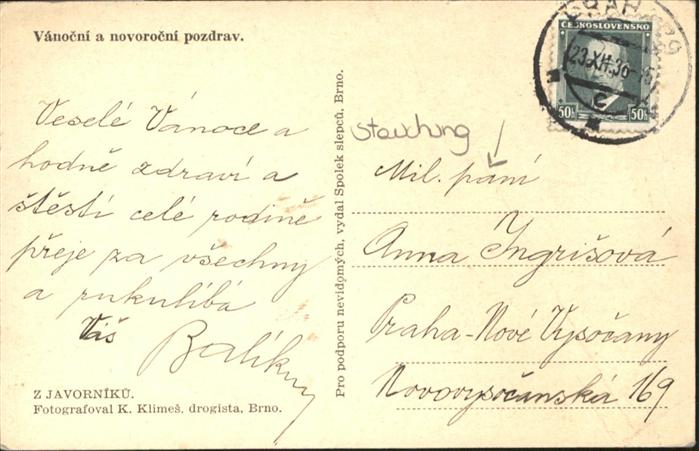 Vánoční a novoroční pozdrav.
Veselé Vánoce a
hodně zdraví a
štěstí celé rodině
přeje za všechny
a rukulíbá
Váš
Z JAVORNÍKŮ.
Fotografoval K. Klimeš, drogista, Brno.
Pro podporu nevidomých, vydal Spolek slepců, Brno.
PRAHA
ČESKOSLOVENSKO
23.XII.36
50h 50h
Mil. paní
Anna Ingrišová
Praha-Nové Vysočany
Novovysočanská 169